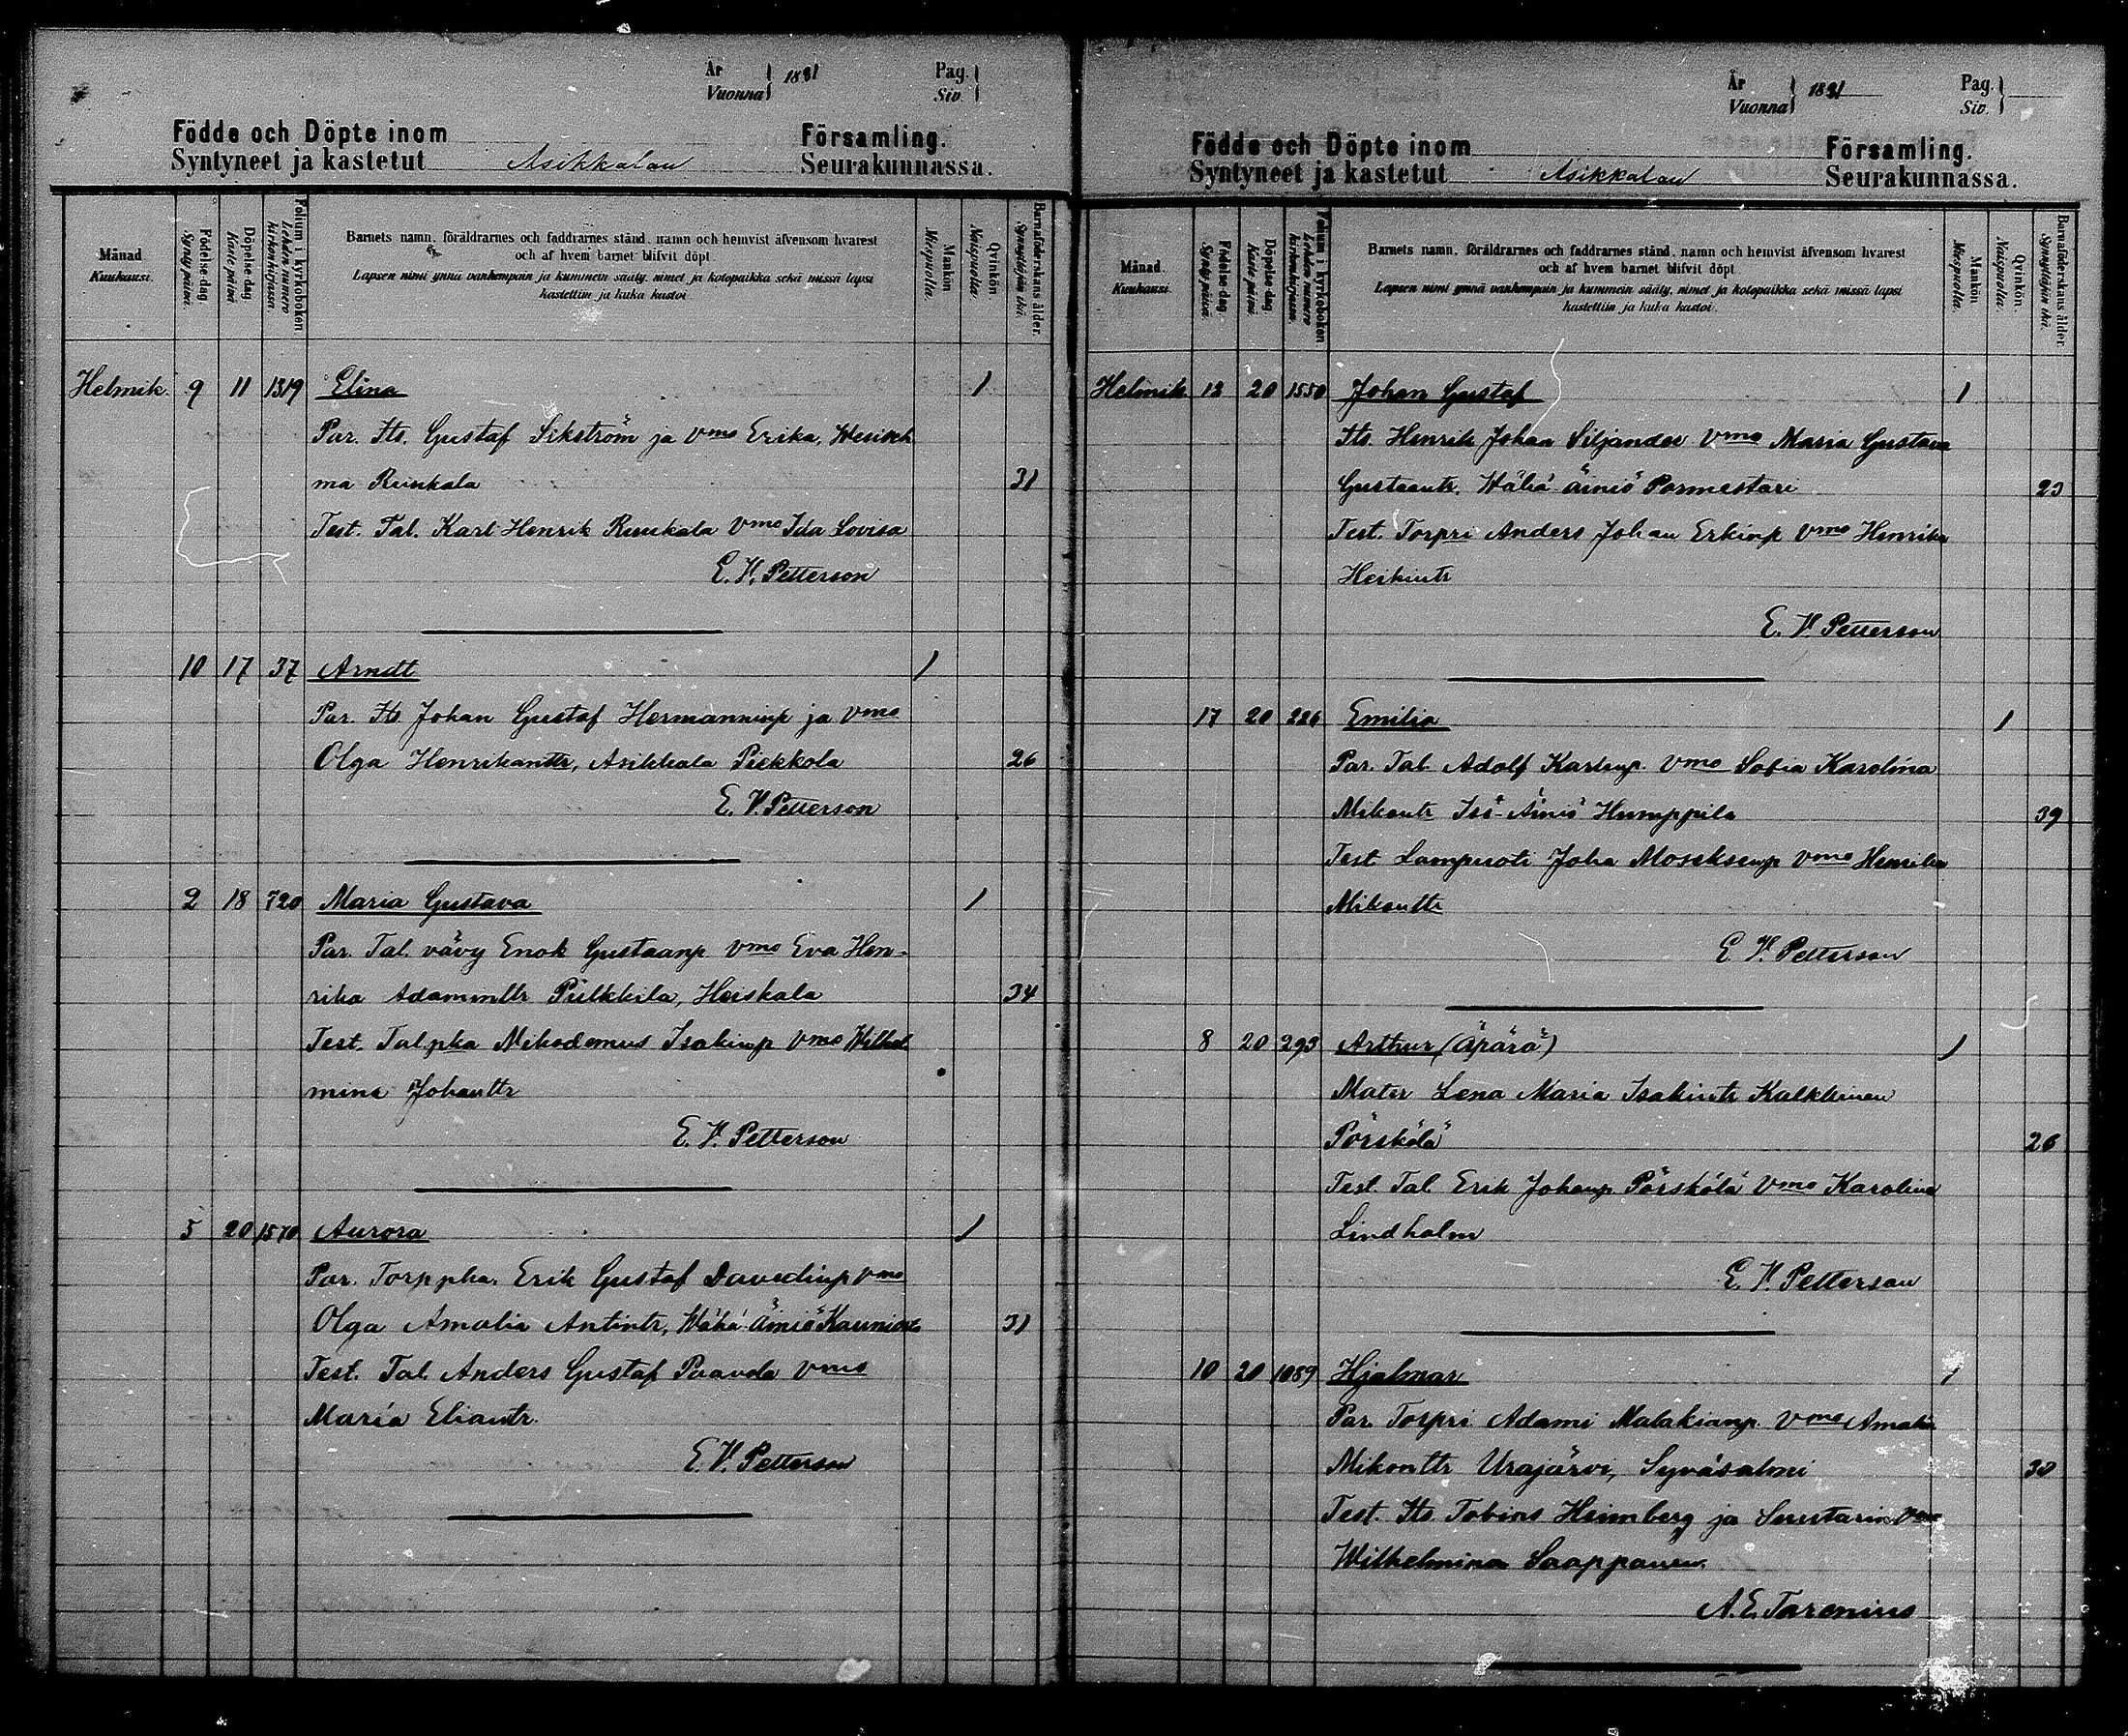 År
Vuonna
1881
Pag.
Siv.
Födde och Döpte inom
Syntyneet ja kastetut Asikkalan
Församling.
Seurakunnassa.
Månad.
Kuukausi.
Födelse-dag.
Synty päivä.
Döpelse-dag
Kaste päivä
Folium i kyrkoboken.
Lehden numero kirkonkirjassa.
Barnets namn, föräldrarnes och faddrarnes stånd, namn och hemvist äfvensom hvarest
och af hvem barnet blifvit döpt.
Lapsen nimi ynnä vanhempain ja kummein sääty, nimet ja kotopaikka sekä missä lapsi
kastettiin ja kuka kastoi
Mankön
Miespuolta.
Qvinkön
Naispuolta.
Barnaföderskans ålder.
Synnyttäjän ikä.
Helmik. 9 11 1319 Elina 1
Par. Its. Gustaf Sikström ja Vmo Erika,
ma 31
Test. Tal. Karl Henrik Vmo Ida Lovisa
E. V. Petterson
10 17 37 Arndt 1
Par. Its. Johan Gustaf Hermanninp ja Vmo
Olga Henrikantr, Asikkala Piekkola 26
E. V. Petterson
2 18 720 Maria Gustava 1
Par. Tal. vävy Enok Gustaanp Vmo Eva Hen-
rika Adamintr Pulkkila, Heiskala 34
Test. Talpka Nikodemus Isakinp Vmo Wilhel
mina Johantr
E. V. Petterson
5 20 1570 Aurora 1
Par. Torppka. Erik Gustaf Davidinp Vmo
Olga Amalia Antintr, Wähä Äiniö 31
Test. Tal. Anders Gustaf Paavola Vmo
Maria Eliantr.
E. V. Petterson
År
Vuonna
1881
Pag.
Siv.
Födde och Döpte inom
Syntyneet ja kastetut Asikkalan
Församling.
Seurakunnassa.
Månad.
Kuukausi.
Födelse-dag.
Synty päivä.
Döpelse-dag
Kaste päivä
Folium i kyrkoboken.
Lehden numero kirkonkirjassa.
Barnets namn, föräldrarnes och faddrarnes stånd, namn och hemvist äfvensom hvarest
och af hvem barnet blifvit döpt.
Lapsen nimi ynnä vanhempain ja kummein sääty, nimet ja kotopaikka sekä missä lapsi
kastettiin ja kuka kastoi.
Mankön
Miespuolta.
Qvinkön.
Naispuolta.
Barnaföderskans ålder.
Synnyttäjän ikä.
Helmik. 12 20 1550 Johan Gustaf 1
Its. Henrik Johan Siljander Vmo Maria Gustava
Gustaantr. Wähä Äiniö Pormestari 23
Test. Torpri Anders Johan Erkinp Vmo Henrika
Heikintr
E. V. Petterson
17 20 226 Emilia 1
Par. Tal. Adolf Karlenp. Vmo Sofia Karolina
Mikontr Iso-Äiniö Humppila 39
Test Lampuoti Joha Moseksenp Vmo Henrika
Mikontr
E. V. Petterson
8 20 293 Arthur (äpärä) 1
Mater Lena Maria Isakintr Kalkkinen
Pörskölä 26
Test. Tal. Erik Johanp Pörskölä Vmo Karolina
Lindholm
E. V. Petterson
10 20 1089 Hjalmar 1
Par. Torpri Adami Malakianp. Vmo Amalia
Mikontr Urajärvi, Syväsalmi 38
Test. Its. Tobias Heimberg ja Vmo
Wilhelmina Saappanen.
A. E. Tarenius